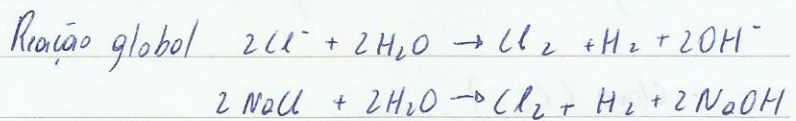 Reação global 2Cl⁻ + 2H₂O → Cl₂ + H₂ + 2OH⁻
2NaCl + 2H₂O → Cl₂ + H₂ + 2NaOH